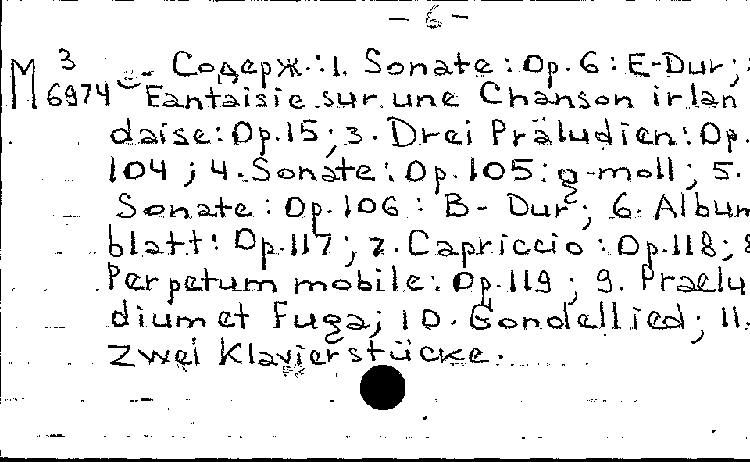 - 6 -
М 3 6974 - Содерж.: 1. Sonate: Op. 6: E-Dur;
Fantaisie sur une Chanson irlan
daise: Op. 15; 3. Drei Präludien: Op.
104; 4. Sonate: Op. 105: g-moll; 5.
Sonate: Op. 106: B-Dur; 6. Album
blatt: Op. 117; 7. Capriccio: Op. 118; 8
Perpetum mobile: Op. 119; 9. Praelu
dium et Fuga; 10. Gondellied; 11.
Zwei Klavierstücke.